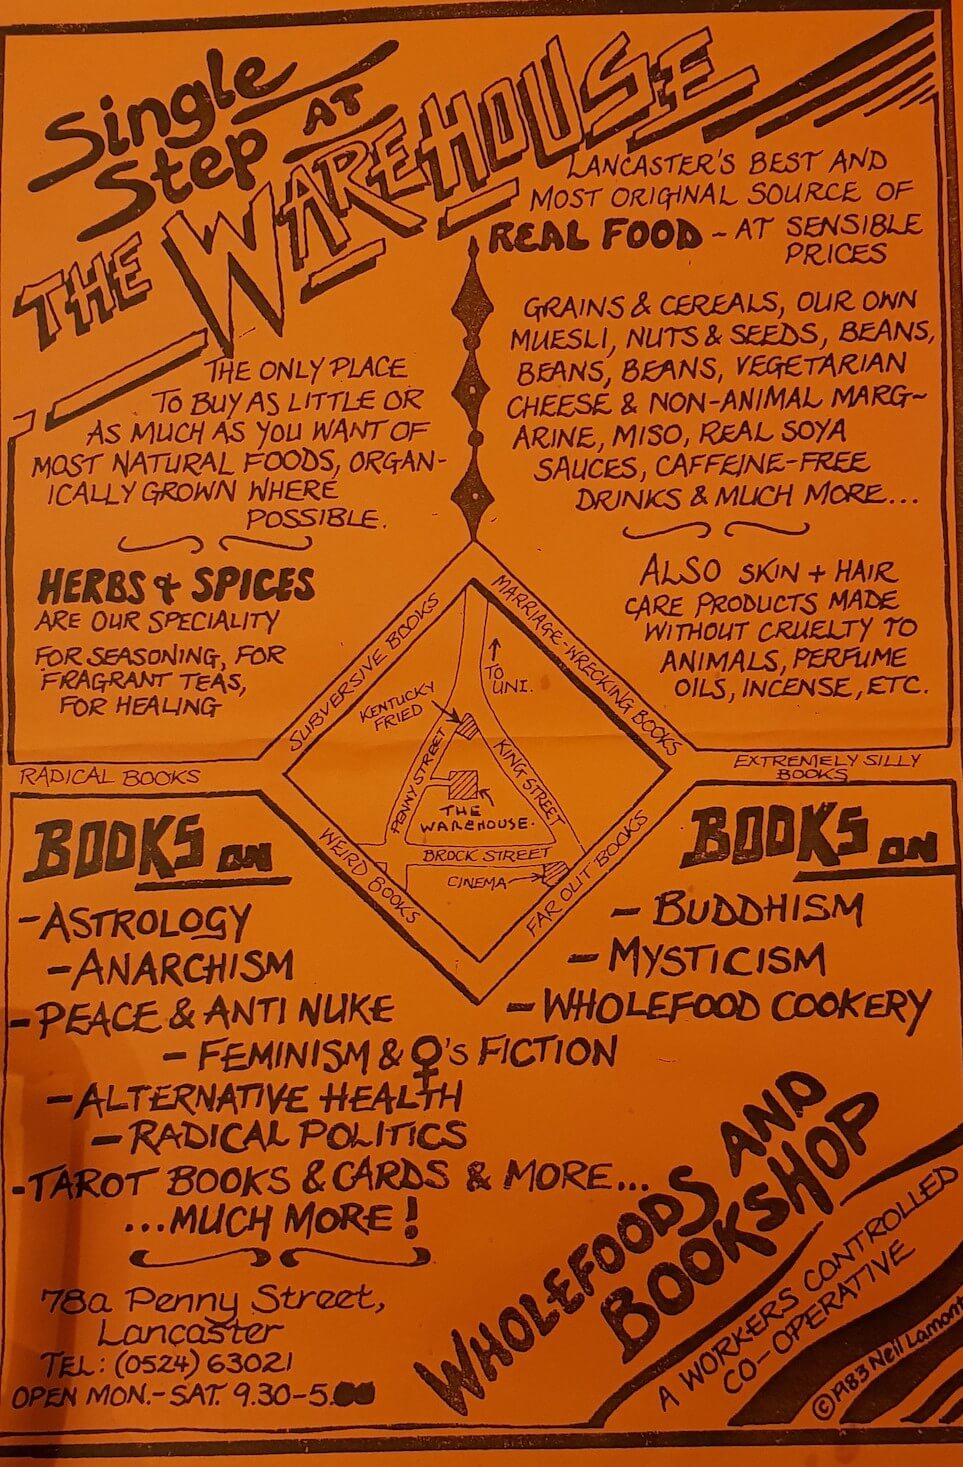 Single
Step AT
THE WAREHOUSE
LANCASTER'S BEST AND
MOST ORIGINAL SOURCE OF
REAL FOOD ~ AT SENSIBLE
PRICES
THE ONLY PLACE
TO BUY AS LITTLE OR
AS MUCH AS YOU WANT OF
MOST NATURAL FOODS, ORGAN-
ICALLY GROWN WHERE
POSSIBLE.
HERBS & SPICES
ARE OUR SPECIALITY
FOR SEASONING, FOR
FRAGRANT TEAS,
FOR HEALING
GRAINS & CEREALS, OUR OWN
MUESLI, NUTS & SEEDS, BEANS,
BEANS, BEANS, VEGETARIAN
CHEESE & NON-ANIMAL MARG~
ARINE, MISO, REAL SOYA
SAUCES, CAFFEINE-FREE
DRINKS & MUCH MORE...
ALSO SKIN + HAIR
CARE PRODUCTS MADE
WITHOUT CRUELTY TO
ANIMALS, PERFUME
OILS, INCENSE, ETC.
RADICAL BOOKS
SUBVERSIVE BOOKS
MARRIAGE-WRECKING BOOKS
EXTREMELY SILLY
BOOKS
WEIRD BOOKS
FAR OUT BOOKS
↑
TO
UNI.
KENTUCKY
FRIED
PENNY STREET
KING STREET
THE
WAREHOUSE.
BROCK STREET
CINEMA
BOOKS ON
-ASTROLOGY
-ANARCHISM
-PEACE & ANTI NUKE
- FEMINISM & ♀'S FICTION
-ALTERNATIVE HEALTH
- RADICAL POLITICS
-TAROT BOOKS & CARDS & MORE...
...MUCH MORE!
BOOKS ON
- BUDDHISM
- MYSTICISM
- WHOLEFOOD COOKERY
78a Penny Street,
Lancaster
TEL: (0524) 63021
OPEN MON.-SAT. 9.30-5.00
WHOLEFOODS AND
BOOKSHOP
A WORKERS CONTROLLED
CO-OPERATIVE
©1983 Neil Lamont